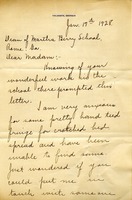 Jan. 17th 1928
Dean of Martha Berry School,
Rome Ga.
Dear Madam:-
Knowing of your
wonderful work in the
school there prompted this
letter.
I am very anxious
for some pretty hand tied
fringe for crocheted bed
spread and have been
unable to find some.
Just wondered if you
could put me in
touch with someone